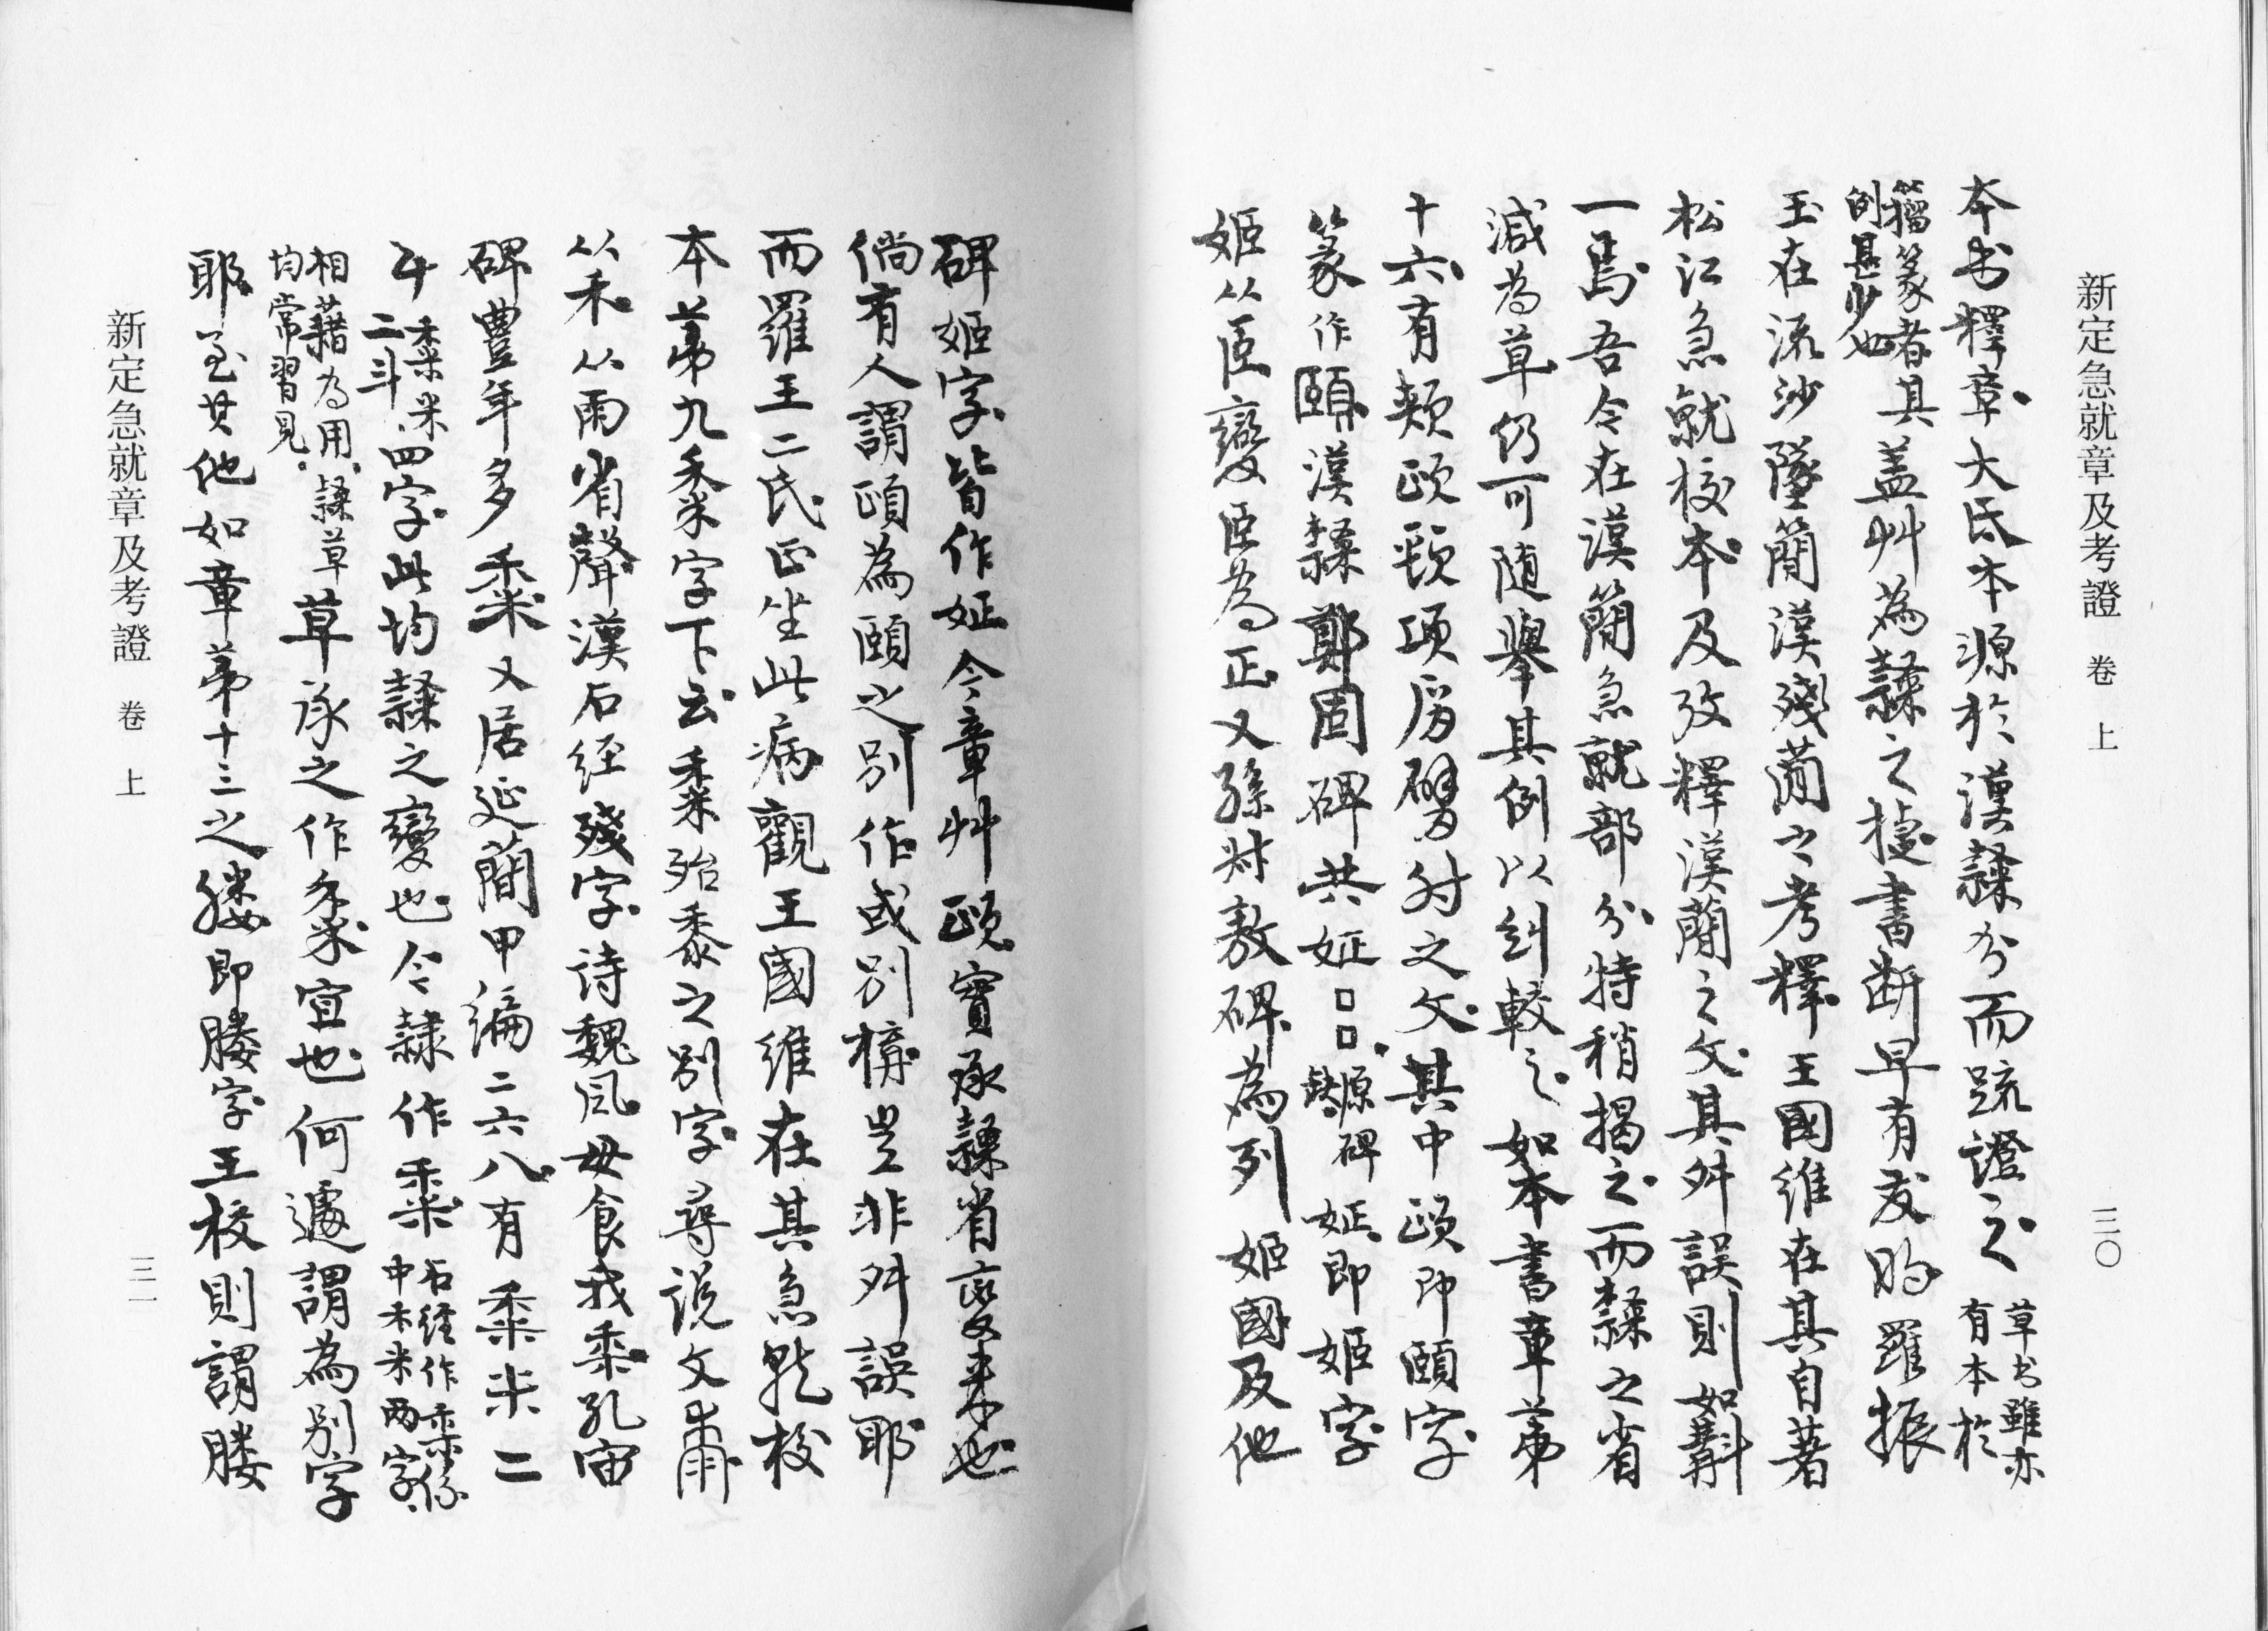 新定急就章及考證 卷上 三〇
本书釋章大氐本源於漢隸分而疏證之草书雖亦有本於
籀篆者其例甚少也蓋艸為隸之捷書斷早有文明羅振
玉在流沙墜簡漢殘簡之考釋王國維在其自著
松江急就校本及攷釋漢簡之文其舛誤則如斠
一馬吾今在漢簡急就部分特稍揭之而隸之省
減為草仍可随舉其例以糾較之如本書章第
十六有頰頤頸項肩臂肘之文其中頤即頤字
篆作頤漢隸鄭固碑共姃□□原碑缺姃即姬字
姬从𦣞變𦣞為正又孫叔敖碑為列姬國及他
碑姬字皆作姃今章艸頤實承隸省變来也
倘有人謂頤為頤之別作或別構豈非舛誤耶
而羅王二氏正坐此病觀王國維在其急就校
本第九黍字下云黍殆黍之別字尋説文黍
从禾从雨省聲漢石经殘字诗魏风毋食我黍孔宙
碑豐年多黍又居延簡甲编二六八有黍米二
斗黍米二斗四字此均隸之變也今隸作黍石經作黍係中禾米两字
相藉為用隸草均常習見草承之作黍宜也何遽謂為別字
耶至其他如章第十三之膢即膢字王校則謂膢
新定急就章及考證 卷上 三一